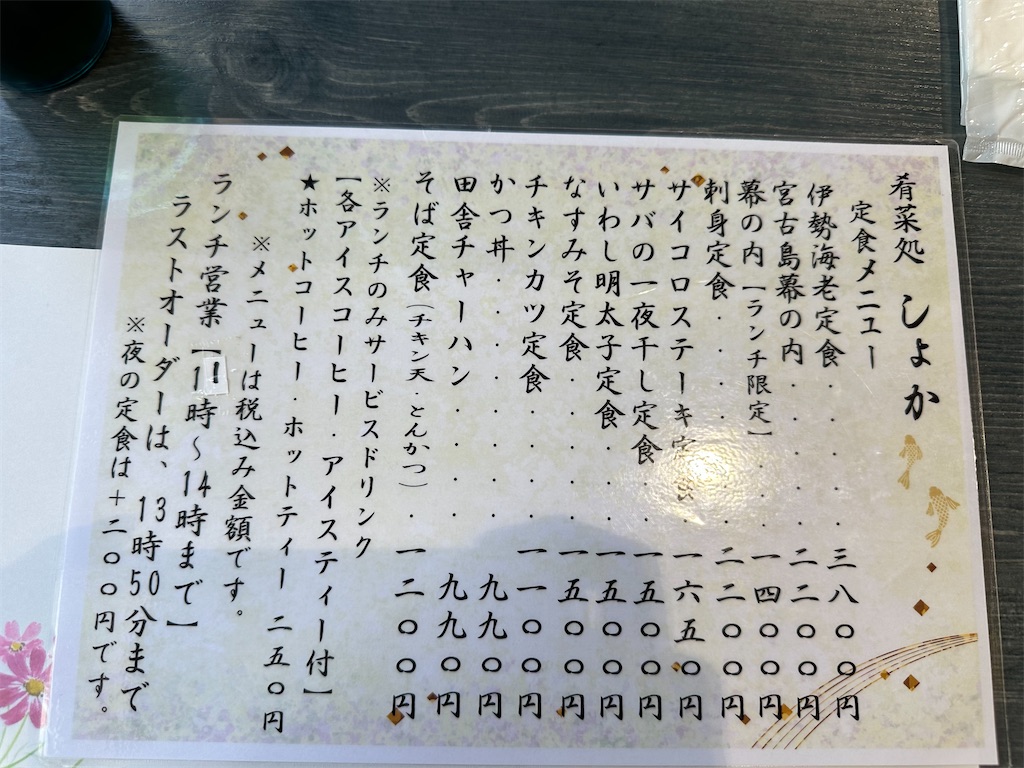 肴菜処 しょか
定食メニュー
伊勢海老定食・・・・・三八〇〇円
宮古島幕の内・・・・・二二〇〇円
幕の内【ランチ限定】・・・一四〇〇円
刺身定食・・・・・・・二二〇〇円
サイコロステーキ定食・一六五〇円
サバの一夜干し定食・・一五〇〇円
いわし明太子定食・・・一五〇〇円
なすみそ定食・・・・・一五〇〇円
チキンカツ定食・・・・一一〇〇円
かつ丼・・・・・・・・九九〇円
田舎チャーハン・・・・九九〇円
そば定食(チキン天・とんかつ)・一二〇〇円
※ランチのみサービスドリンク
【各アイスコーヒー・アイスティー付】
★ホットコーヒー・ホットティー 二五〇円
※メニューは税込み金額です。
ランチ営業【11時～14時まで】
ラストオーダーは、13時50分まで
※夜の定食は＋二〇〇円です。